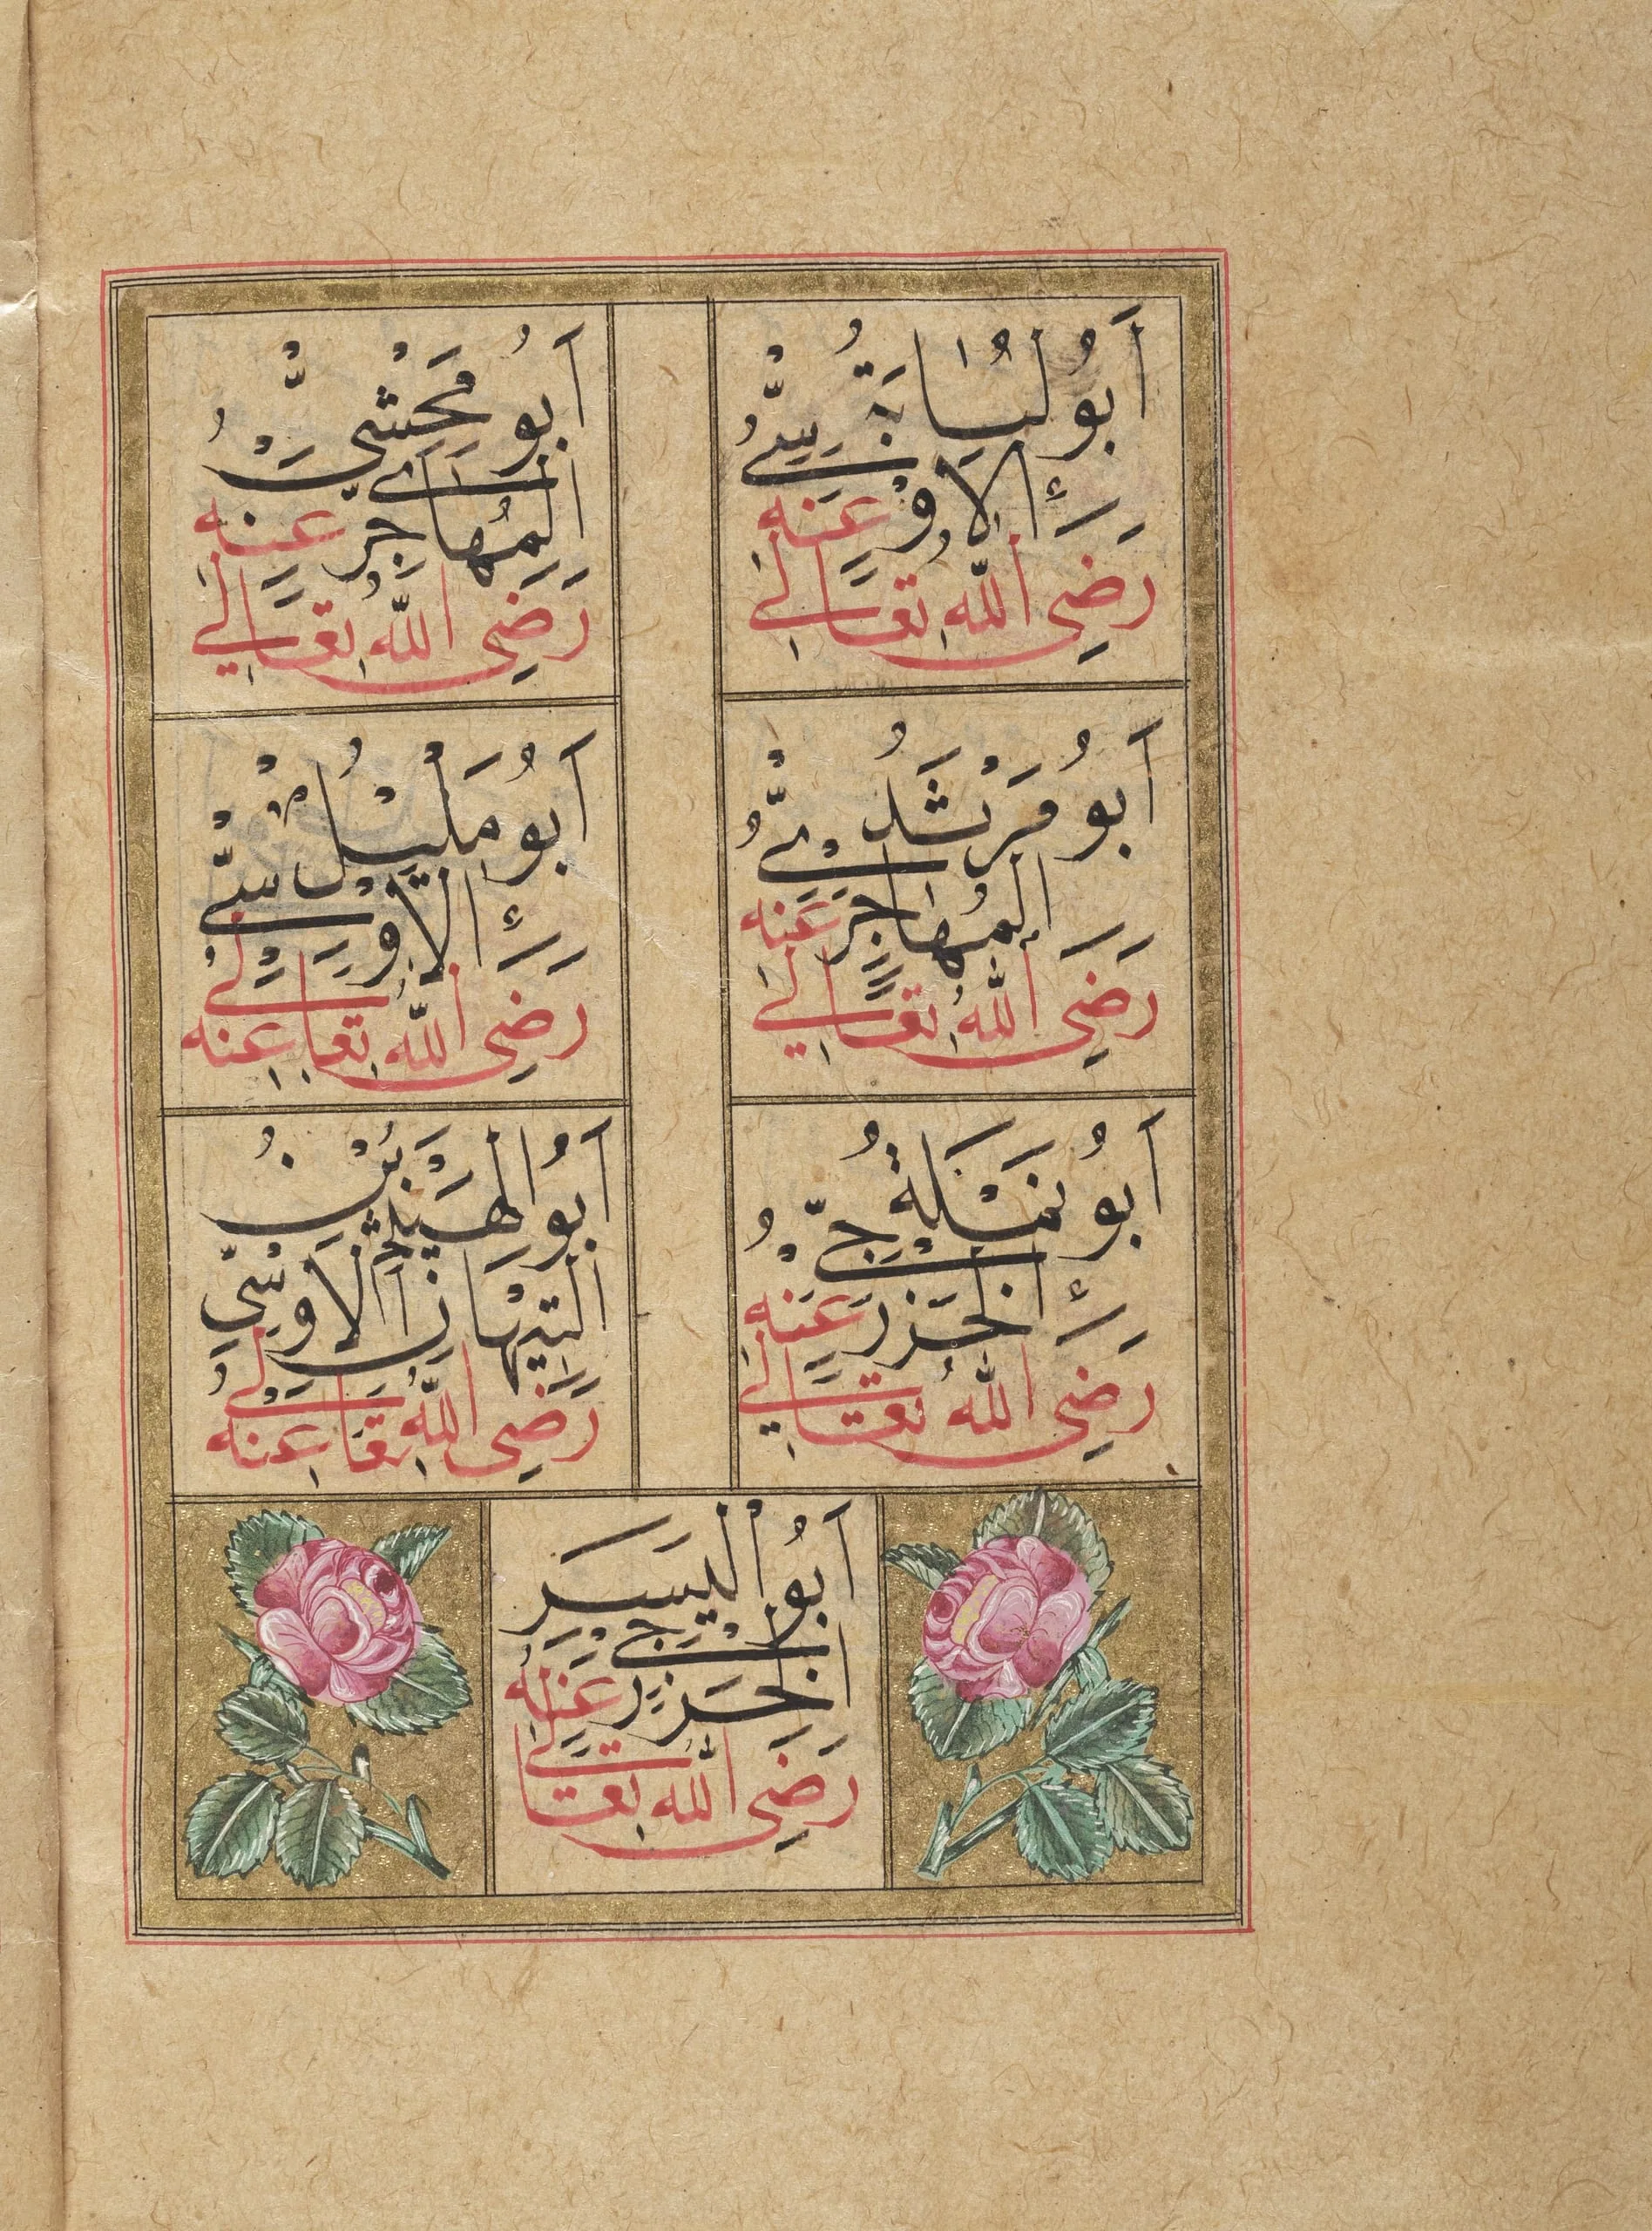 أَبُو لُبَابَةُ
الْأَوْسِيُّ
رَضِيَ اللّٰهُ تَعَالٰى عَنْهُ
أَبُو مَخْشِيٍّ
الْمُهَاجِرِيُّ
رَضِيَ اللّٰهُ تَعَالٰى عَنْهُ
أَبُو مَرْثَدُ
الْمُهَاجِرِيُّ
رَضِيَ اللّٰهُ تَعَالٰى عَنْهُ
أَبُو مُلَيْلُ
الْأَوْسِيُّ
رَضِيَ اللّٰهُ تَعَالٰى عَنْهُ
أَبُو نَمْلَةُ
الْخَزْرَجِيُّ
رَضِيَ اللّٰهُ تَعَالٰى عَنْهُ
أَبُو الْهَيْثَمِ بْنُ
التَّيْهَانِ الْأَوْسِيُّ
رَضِيَ اللّٰهُ تَعَالٰى عَنْهُ
أَبُو الْيَسَرِ
الْخَزْرَجِي
رَضِيَ اللّٰهُ تَعَالٰى عَنْهُ